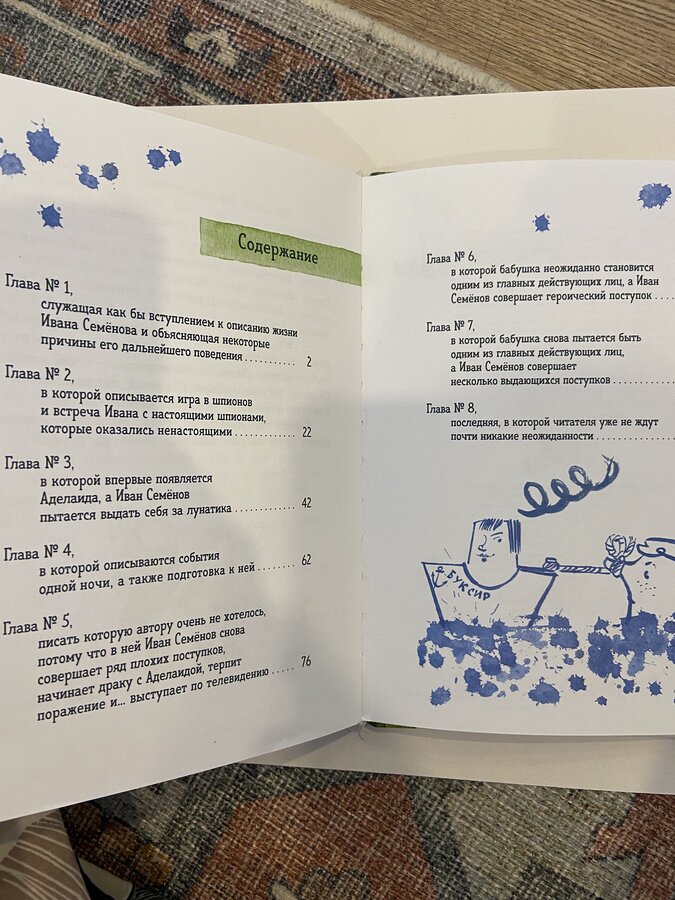 Содержание
Глава № 1,
служащая как бы вступлением к описанию жизни
Ивана Семёнова и объясняющая некоторые
причины его дальнейшего поведения .......... 2
Глава № 2,
в которой описывается игра в шпионов
и встреча Ивана с настоящими шпионами,
которые оказались ненастоящими ............ 22
Глава № 3,
в которой впервые появляется
Аделаида, а Иван Семёнов
пытается выдать себя за лунатика ............ 42
Глава № 4,
в которой описываются события
одной ночи, а также подготовка к ней ........ 62
Глава № 5,
писать которую автору очень не хотелось,
потому что в ней Иван Семёнов снова
совершает ряд плохих поступков,
начинает драку с Аделаидой, терпит
поражение и... выступает по телевидению ..... 76
Глава № 6,
в которой бабушка неожиданно становится
одним из главных действующих лиц, а Иван
Семёнов совершает героический поступок ....
Глава № 7,
в которой бабушка снова пытается быть
одним из главных действующих лиц,
а Иван Семёнов совершает
несколько выдающихся поступков ............
Глава № 8,
последняя, в которой читателя уже не ждут
почти никакие неожиданности ...............
БУКСИР